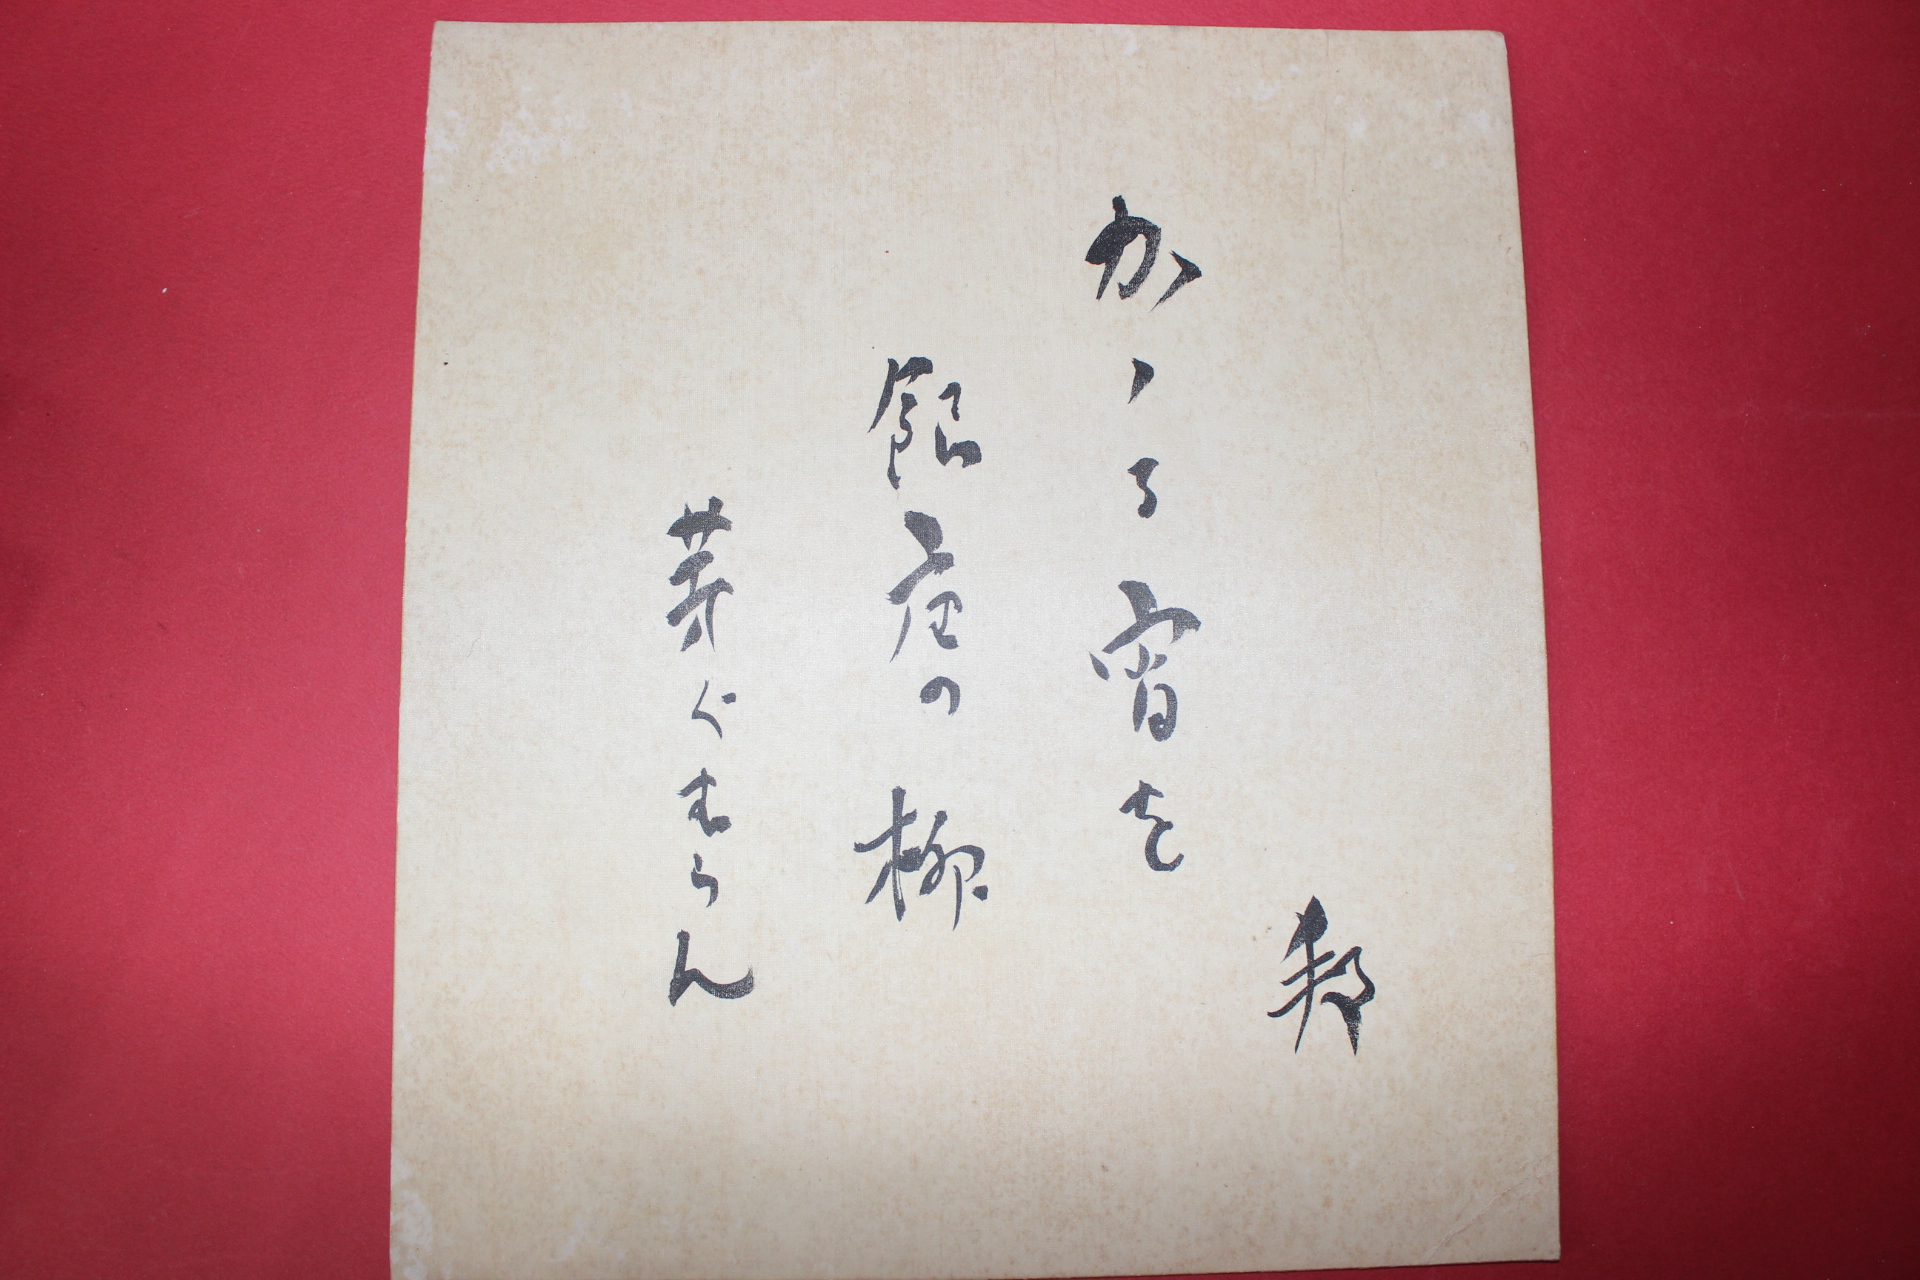 邦
かゝる宵を
銀座の柳
芽ぐむらん